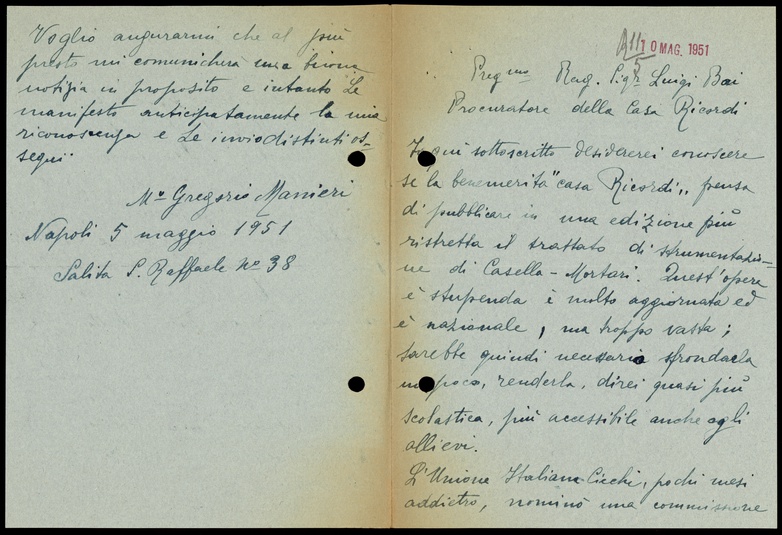 Voglio augurarmi che al più
presto mi comunicherà una buona
notizia in proposito e intanto Le
manifesto anticipatamente la mia
riconoscenza e Le invio distinti os-
sequi.
Mo Gregorio Manieri
Napoli 5 maggio 1951
Salita S. Raffaele No 38
10 MAG. 1951
Pregmo Rag. Sigr. Luigi Bai
Procuratore della Casa Ricordi
Io qui sottoscritto desidererei conoscere
se la benemerita "casa Ricordi„ pensa
di pubblicare in una edizione più
ristretta il trattato di strumentazio-
ne di Casella-Mortari. Quest'opera
è stupenda è molto aggiornata ed
è nazionale, ma troppo vasta;
sarebbe quindi necessario sfrondarla
un poco, renderla, direi quasi più
scolastica, più accessibile anche agli
allievi.
L'Unione Italiana Ciechi, pochi mesi
addietro, nominò una commissione